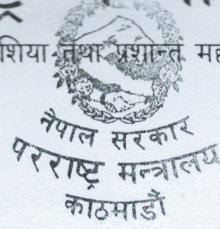 शिया तथा प्रशान्त मह
नेपाल सरकार
परराष्ट्र मन्त्रालय
काठमाडौं